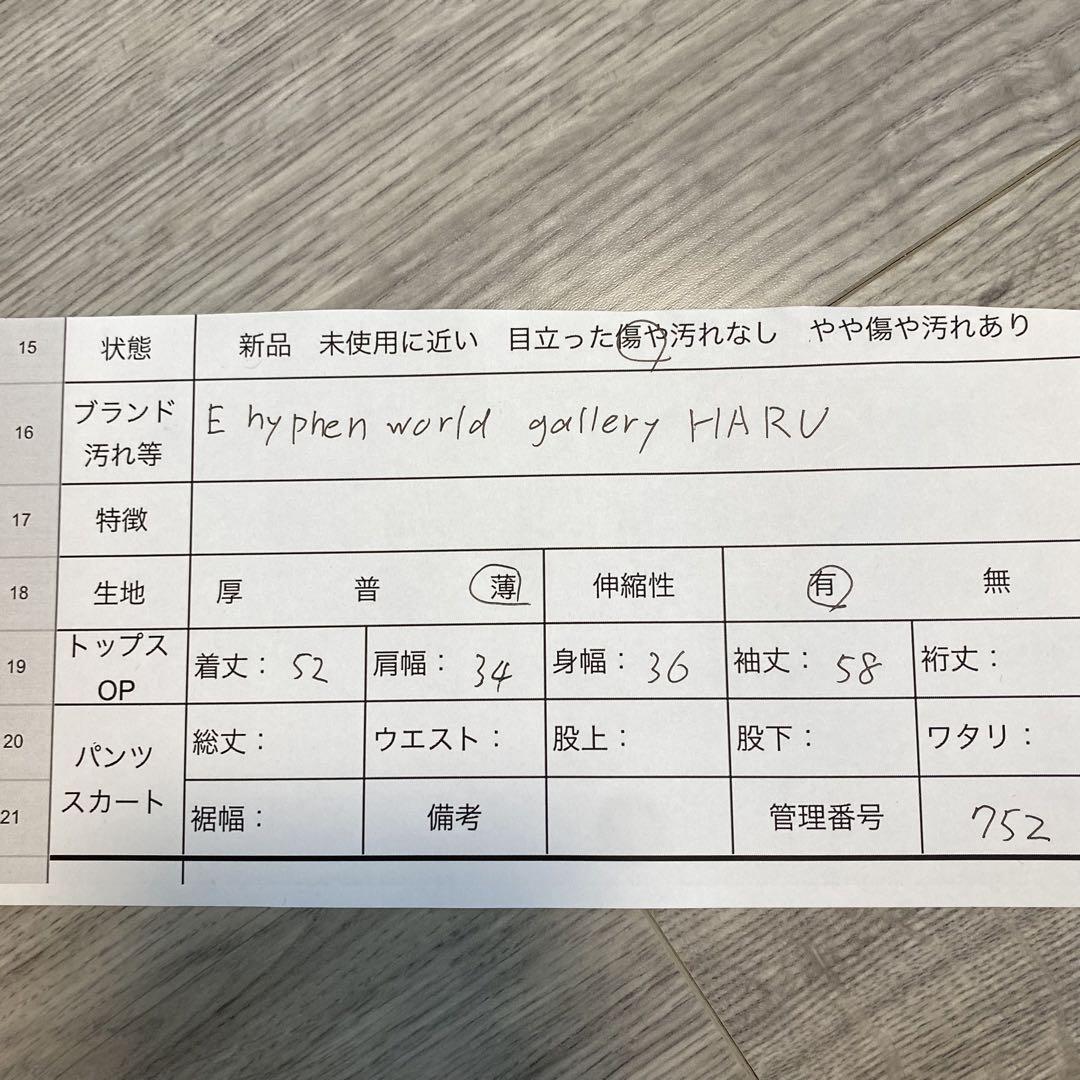 15 状態 新品 未使用に近い 目立った傷や汚れなし やや傷や汚れあり
16 ブランド 汚れ等 E hyphen world gallery HARU
17 特徴
18 生地 厚 普 薄 伸縮性 有 無
19 トップス OP 着丈： 52 肩幅： 34 身幅： 36 袖丈： 58 裄丈：
20 パンツ スカート 総丈： ウエスト： 股上： 股下： ワタリ：
21 裾幅： 備考 管理番号 752